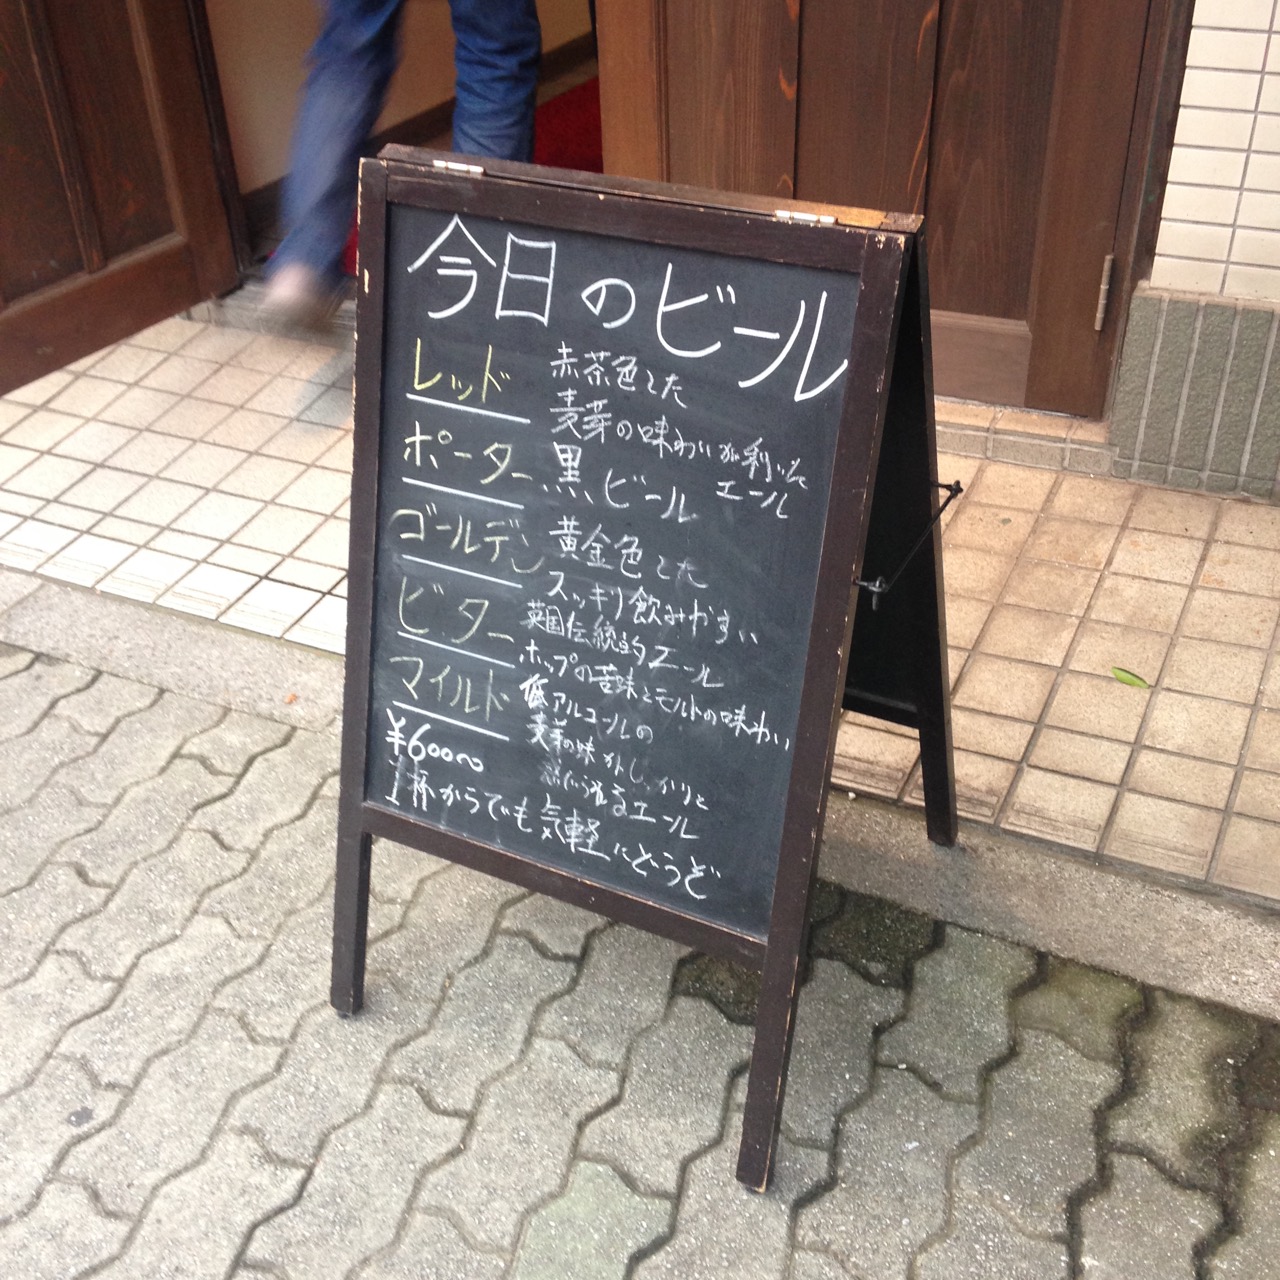 今日のビール
レッド 赤茶色した
麦芽の味わいが利いた
エール
ポーター 黒ビール
ゴールデン 黄金色した
スッキリ飲みやすい
ビター 英国伝統的エール
ホップの苦味とモルトの味わい
マイルド 低アルコールの
麦芽の味がしっかりと
感じられるエール
¥600〜
1杯からでも気軽にどうぞ